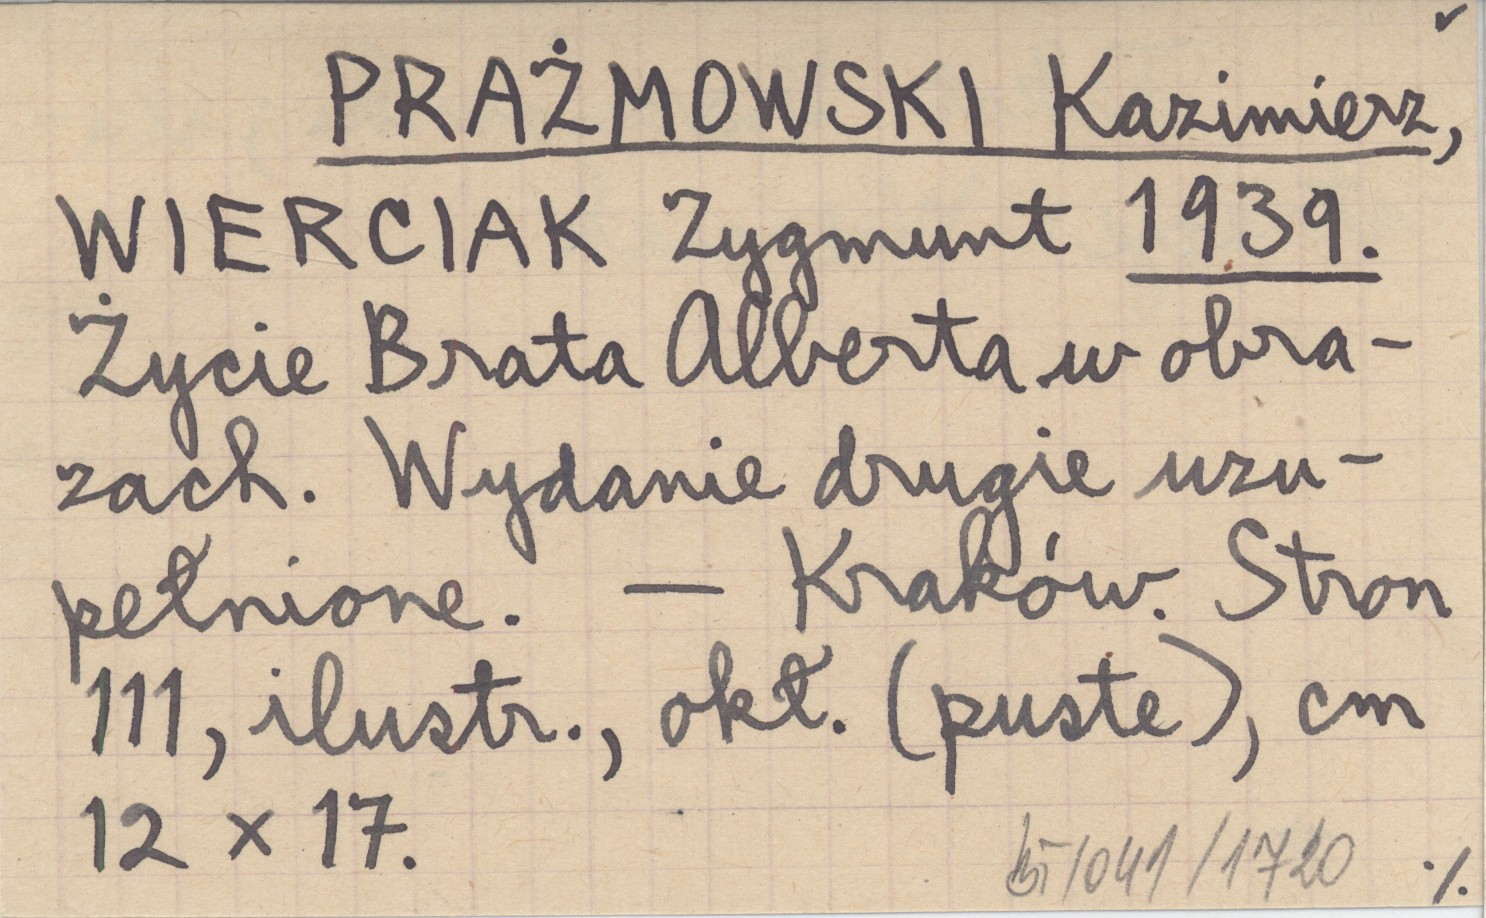 PRAŻMOWSKI Kazimierz,
WIERCIAK Zygmunt 1939.
Życie Brata Alberta w obra-
zach. Wydanie drugie uzu-
pełnione. — Kraków. Stron
111, ilustr., okł. (puste), cm
12 x 17.
/041/1720 ./.